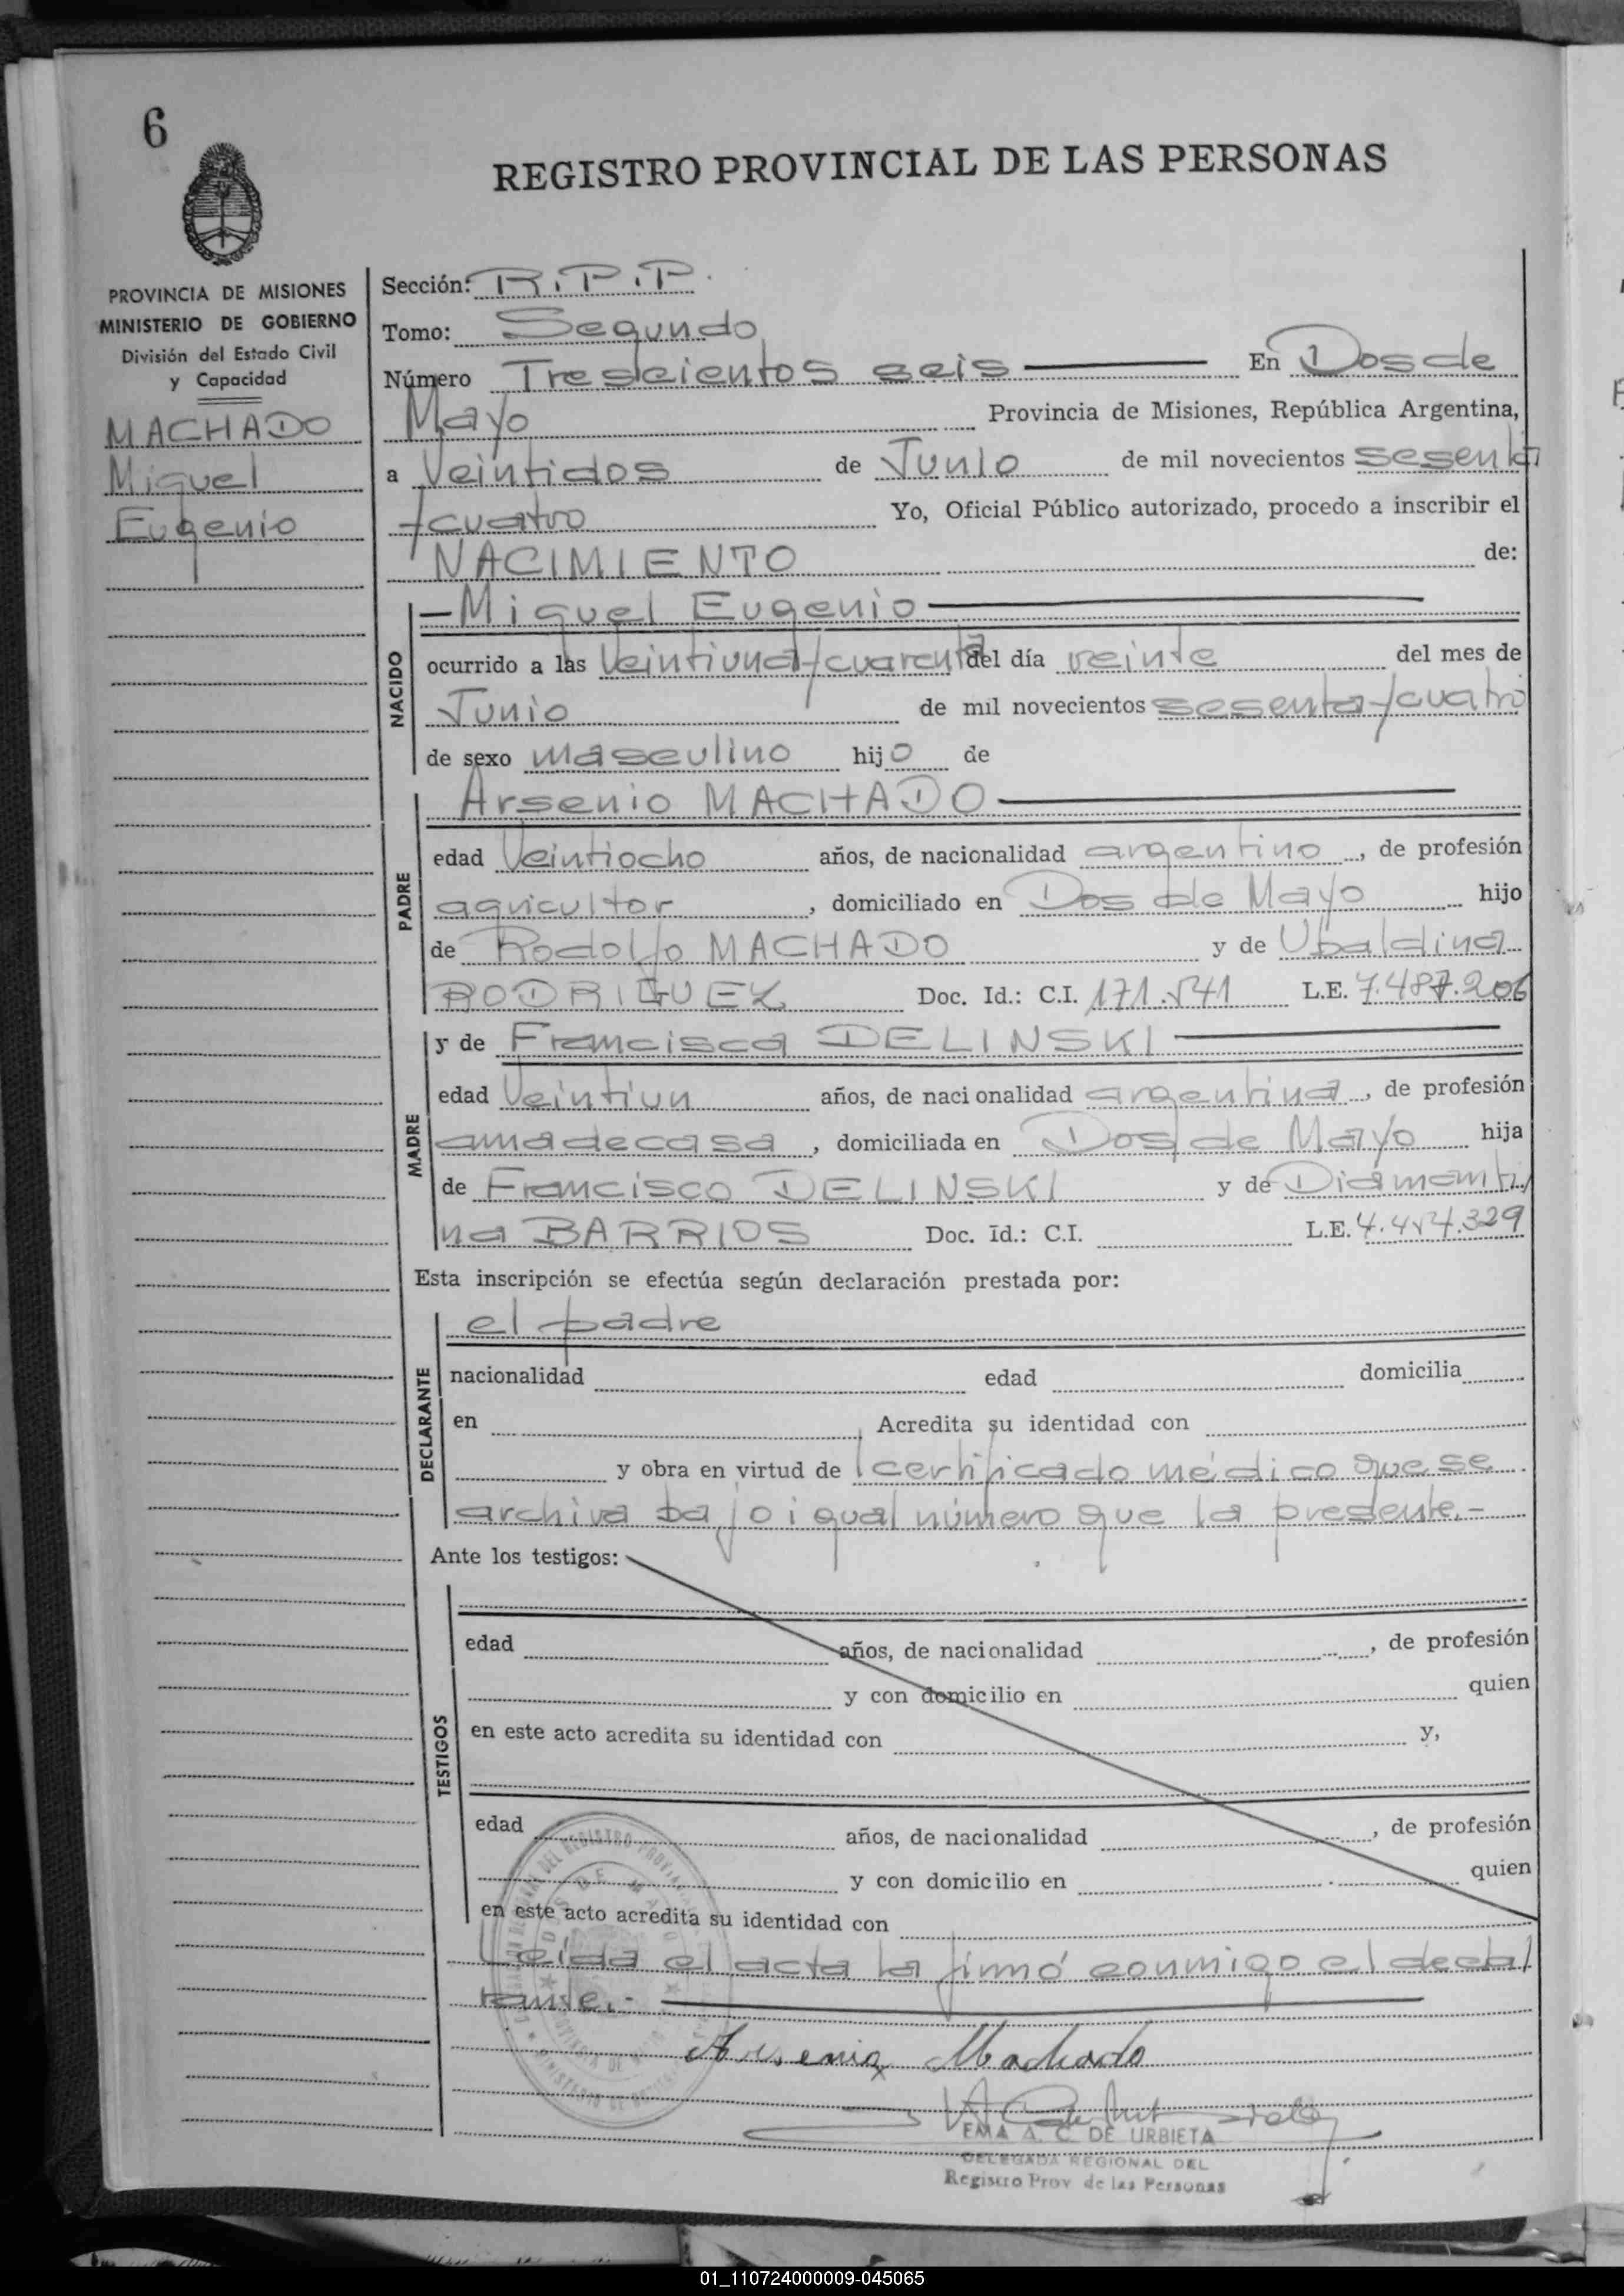 6
REGISTRO PROVINCIAL DE LAS PERSONAS
PROVINCIA DE MISIONES
MINISTERIO DE GOBIERNO
División del Estado Civil
y Capacidad
MACHADO
Miguel
Eugenio
Sección: R.P.P.
Tomo: Segundo
Número Trescientos seis En Dos de
Mayo Provincia de Misiones, República Argentina,
a Veintidos de Junio de mil novecientos sesenti
cuatro Yo, Oficial Público autorizado, procedo a inscribir el
NACIMIENTO de:
NACIDO
Miguel Eugenio
ocurrido a las veintiuna y cuarenta del día veinte del mes de
Junio de mil novecientos sesenta y cuatro
de sexo masculino hijo de
PADRE
Arsenio MACHADO
edad Veintiocho años, de nacionalidad argentino, de profesión
agricultor, domiciliado en Dos de Mayo hijo
de Rodolfo MACHADO y de Ubaldina
RODRIGUEZ Doc. Id.: C.I. 171.541 L.E. 7.487.206
MADRE
y de Francisca DELINSKI
edad Veintiun años, de nacionalidad argentina, de profesión
ama de casa, domiciliada en Dos de Mayo hija
de Francisco DELINSKI y de Diamanti
na BARRIOS Doc. Id.: C.I. L.E. 4.454.329
Esta inscripción se efectúa según declaración prestada por:
DECLARANTE
el padre
nacionalidad edad domicilia
en , Acredita su identidad con
y obra en virtud de certificado médico que se
archiva bajo igual número que la presente.-
Ante los testigos:
TESTIGOS
edad años, de nacionalidad , de profesión
y con domicilio en quien
en este acto acredita su identidad con y,
edad años, de nacionalidad , de profesión
y con domicilio en quien
en este acto acredita su identidad con
Leida el acta la firmó conmigo el decla
rante.-
Arsenio Machado
EMA A. C. DE URBIETA
DELEGADA REGIONAL DEL
Registro Prov de las Personas
01_110724000009-045065